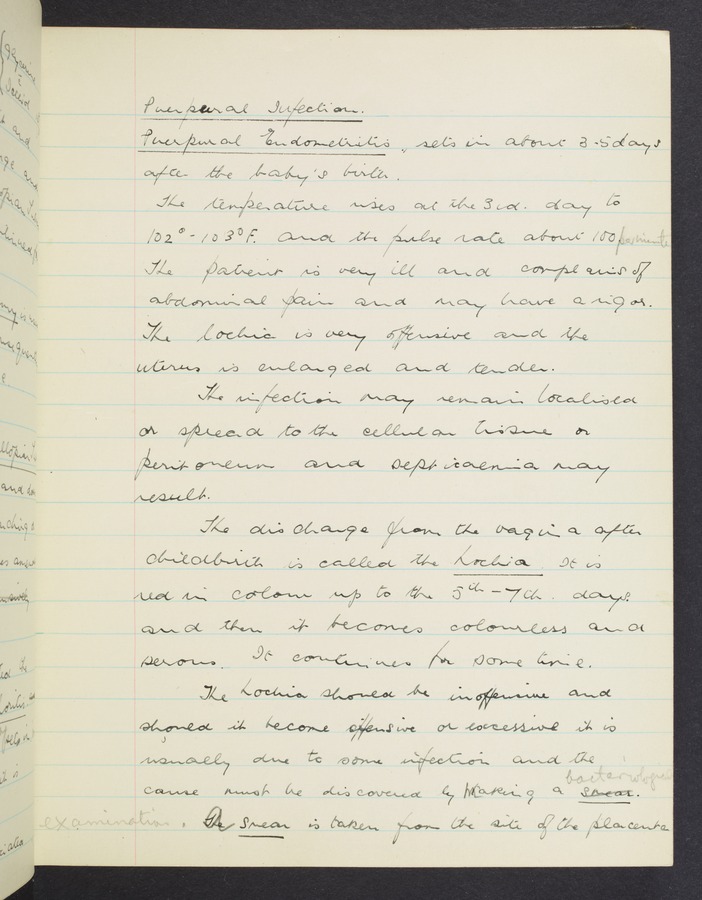 Puerpural Infection.
Puerpural Endometritis, sets in about 3-5 days
after the baby's birth.
The temperature rises at the 3rd. day to
102° - 103° F. and the pulse rate about 100 per minute
The patient is very ill and complains of
abdominal pain and may have a rigor.
The lochia is very offensive and the
uterus is enlarged and tender.
The infection may remain localised
or spread to the cellular tissue or
peritoneum and septicaemia may
result.
The discharge from the vagina after
childbirth is called the Lochia. It is
red in colour up to the 5th - 7th. days.
and then it becomes colourless and
serous. It continues for some time.
The Lochia should be inoffensive and
should it become offensive or excessive it is
usually due to some infection and the
cause must be discovered by making a smear. bacteriological
examination. A smear is taken from the site of the placenta